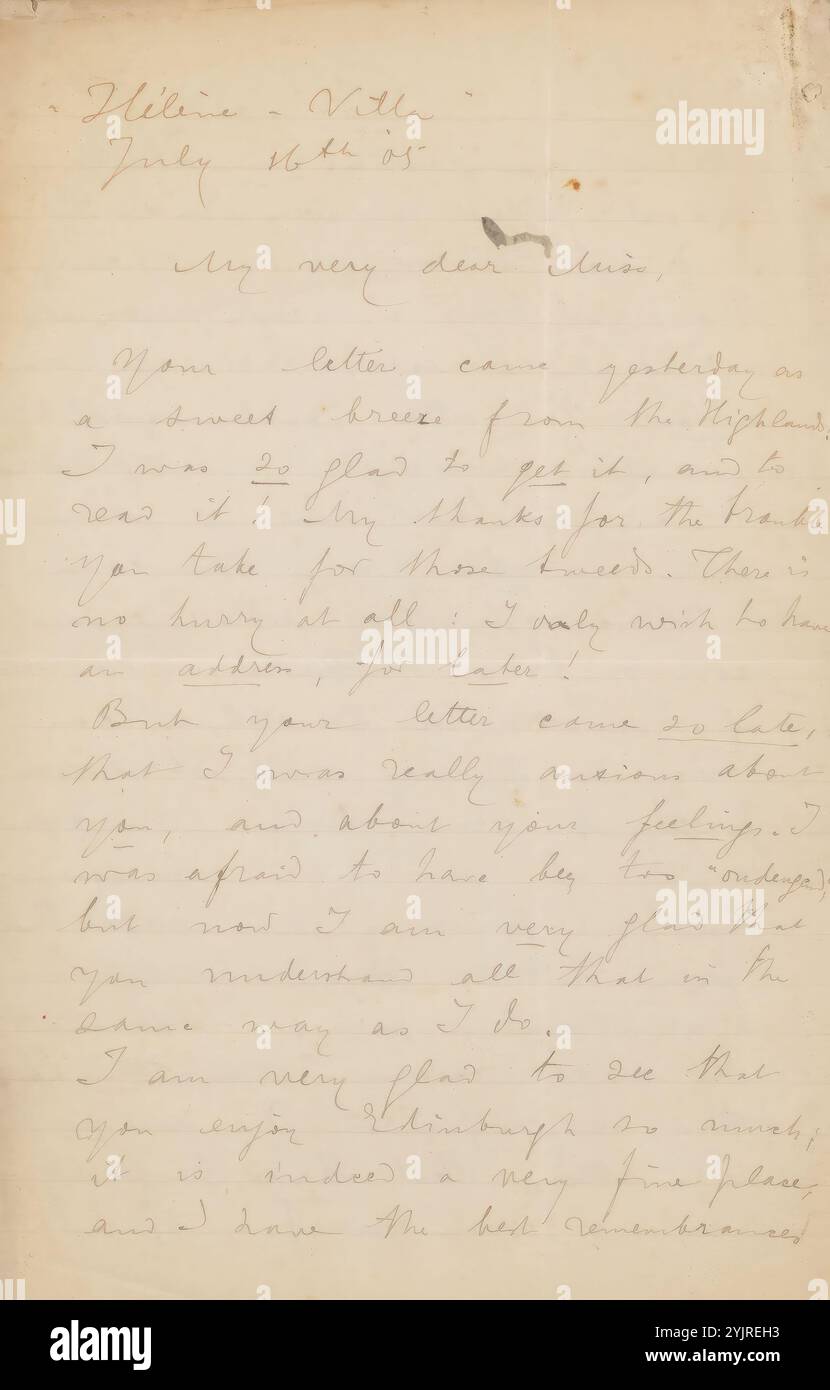 "Hélène - Villa"
July 16th '05
My very dear Miss,
Your letter came yesterday as
a sweet breeze from the Highlands.
I was so glad to get it, and to
read it! My thanks for the trouble
you take for those tweeds. There is
no hurry at all: I only wish to have
an address, for later!
But your letter came so late,
that I was really anxious about
you, and about your feelings. I
was afraid to have been too
but now I am very glad that
you understand all that in the
same way as I do.
I am very glad to see that
you enjoy Edinburgh so much;
it is indeed a very fine place,
and I have the best remembrances
alamy
Image ID: 2YJREH3
www.alamy.com